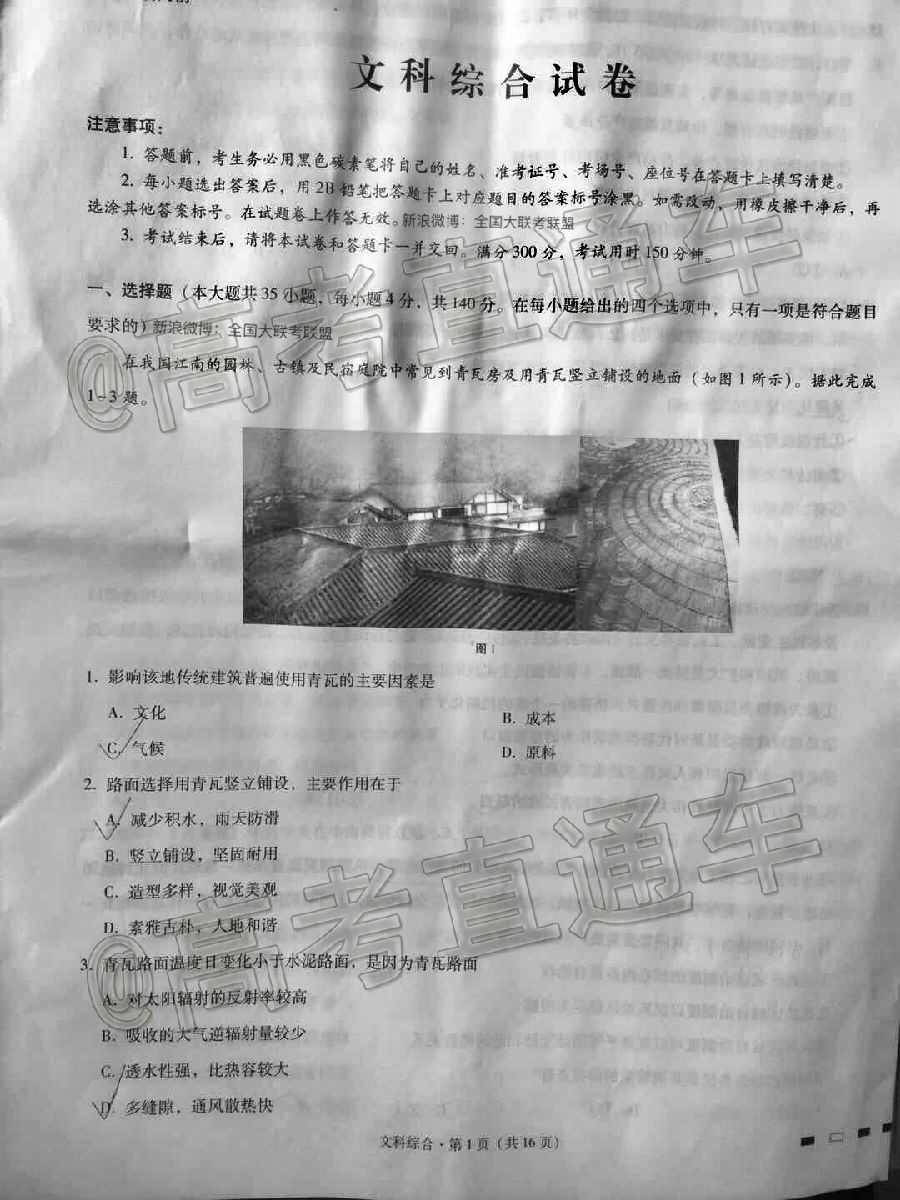 文科综合试卷
注意事项:
1. 答题前,考生务必用黑色碳素笔将自己的姓名、准考证号、考场号、座位号在答题卡上填写清楚。
2. 每小题选出答案后,用2B铅笔把答题卡上对应题目的答案标号涂黑。如需改动,用橡皮擦干净后,再
选涂其他答案标号。在试题卷上作答无效。新浪微博:全国大联考联盟
3. 考试结束后,请将本试卷和答题卡一并交回。满分300分,考试用时150分钟。
一、选择题(本大题共35小题,每小题4分,共140分。在每小题给出的四个选项中,只有一项是符合题目
要求的)新浪微博:全国大联考联盟
在我国江南的园林、古镇及民宿庭院中常见到青瓦房及用青瓦竖立铺设的地面(如图1所示)。据此完成
1~3题。
图1
1. 影响该地传统建筑普遍使用青瓦的主要因素是
A. 文化 B. 成本
C. 气候 D. 原料
2. 路面选择用青瓦竖立铺设,主要作用在于
A. 减少积水,雨天防滑
B. 竖立铺设,坚固耐用
C. 造型多样,视觉美观
D. 素雅古朴,人地和谐
3. 青瓦路面温度日变化小于水泥路面,是因为青瓦路面
A. 对太阳辐射的反射率较高
B. 吸收的大气逆辐射量较少
C. 透水性强,比热容较大
D. 多缝隙,通风散热快
文科综合·第1页(共16页)
@高考直通车
@高考直通车